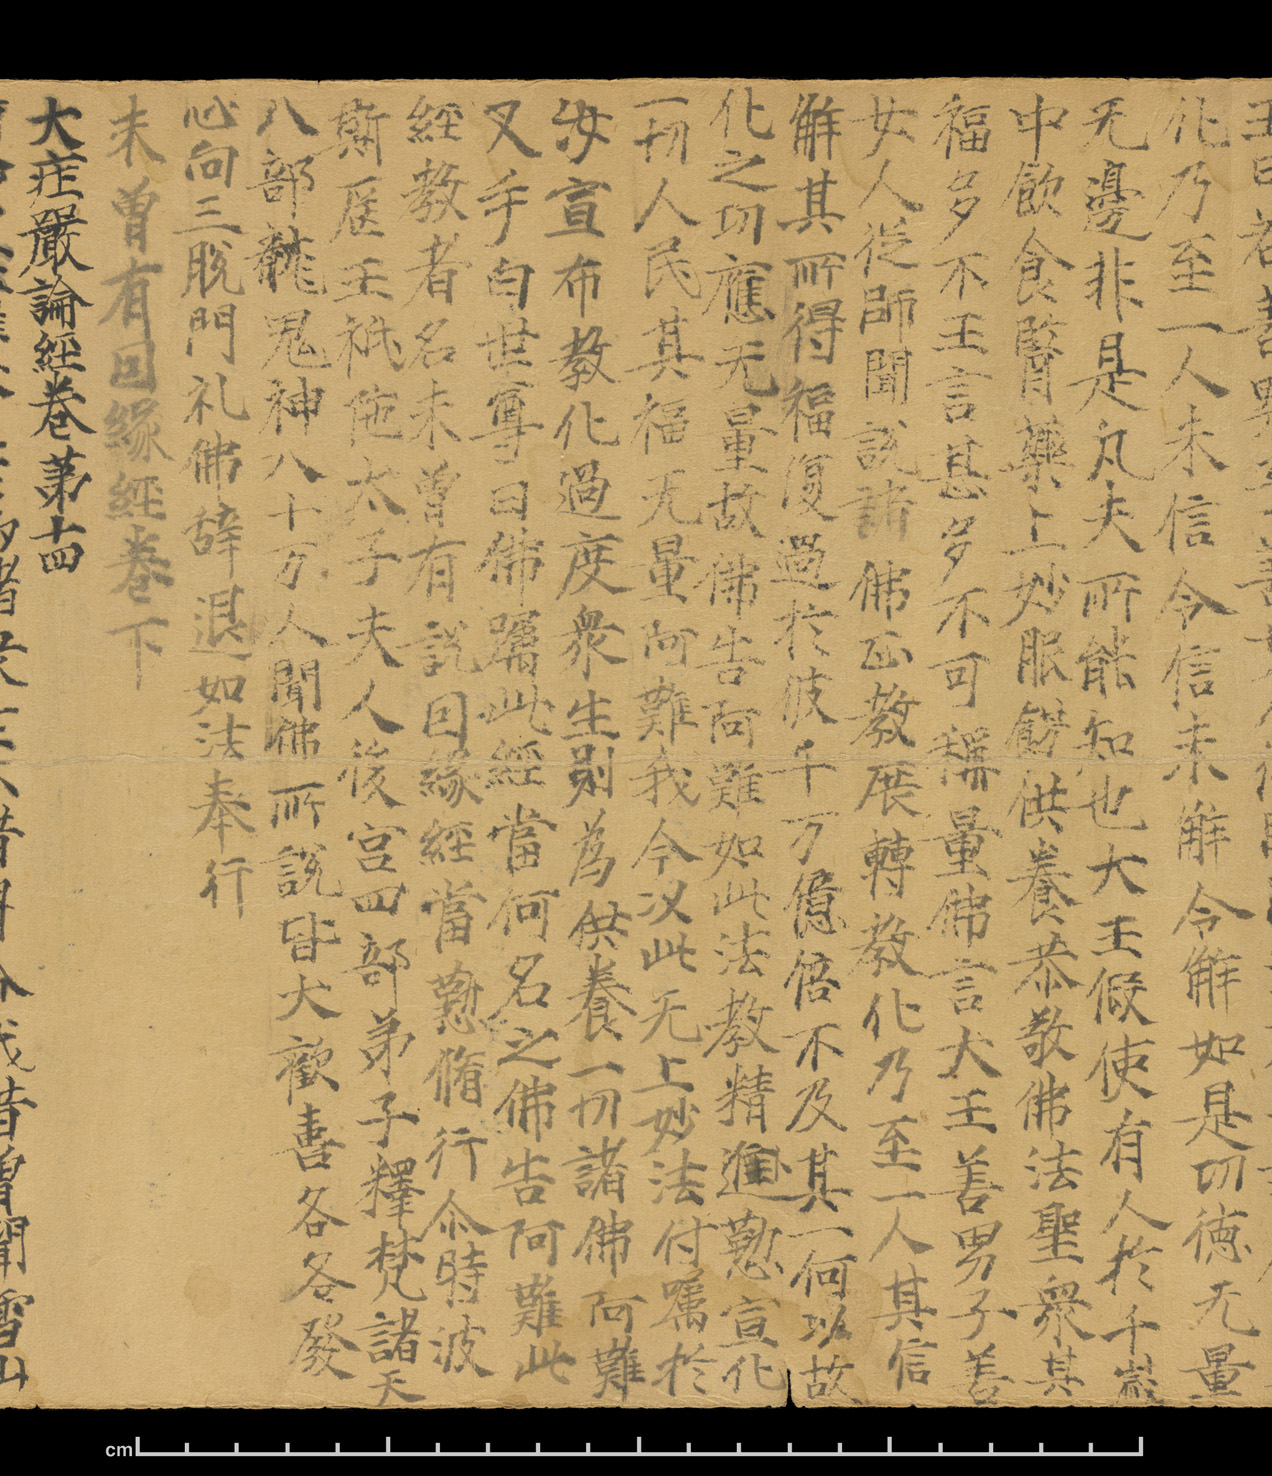 化乃至一人未信令信未解令解如是切德无量
无邊非是凡夫所能知也大王假使有人於千歲
中飲食醫藥上妙服餝供養恭敬佛法聖衆其
福多不王言甚多不可稱量佛言大王善男子善
女人從師聞說諸佛正教展轉教化乃至一人其信
解其所得福復過於彼千万億倍不及其一何以故
化之功應无量故佛告阿難如此法教精進懃宣化
一切人民其福无量阿難我今以此无上妙法付囑於
汝宣布教化過度衆生則為供養一切諸佛阿難
叉手白世尊曰佛囑此經當何名之佛告阿難此
經教者名未曾有說因緣經當懃脩行尒時波
斯匿王祇陁太子夫人後宮四部弟子釋梵諸天
八部龍鬼神八十万人聞佛所說皆大歡喜各各發
心向三脫門礼佛辞退如法奉行
未曾有因緣經卷下
大庄嚴論經卷第十四